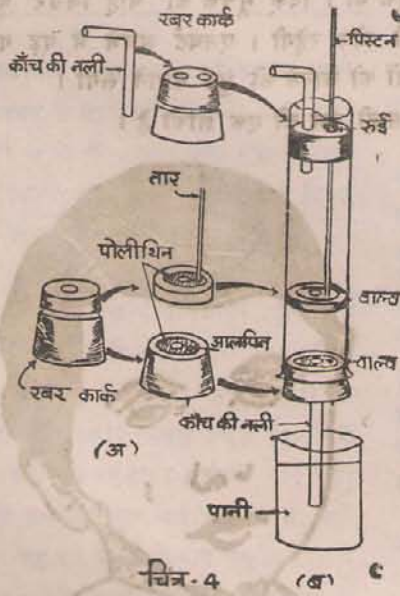 रबर कार्क
पिस्टन
काँच की नली
रुई
तार
पोलीथिन
वाल्व
आलपिन
वाल्व
रबर कार्क
काँच की नली
(अ)
पानी
चित्र-4
(ब)